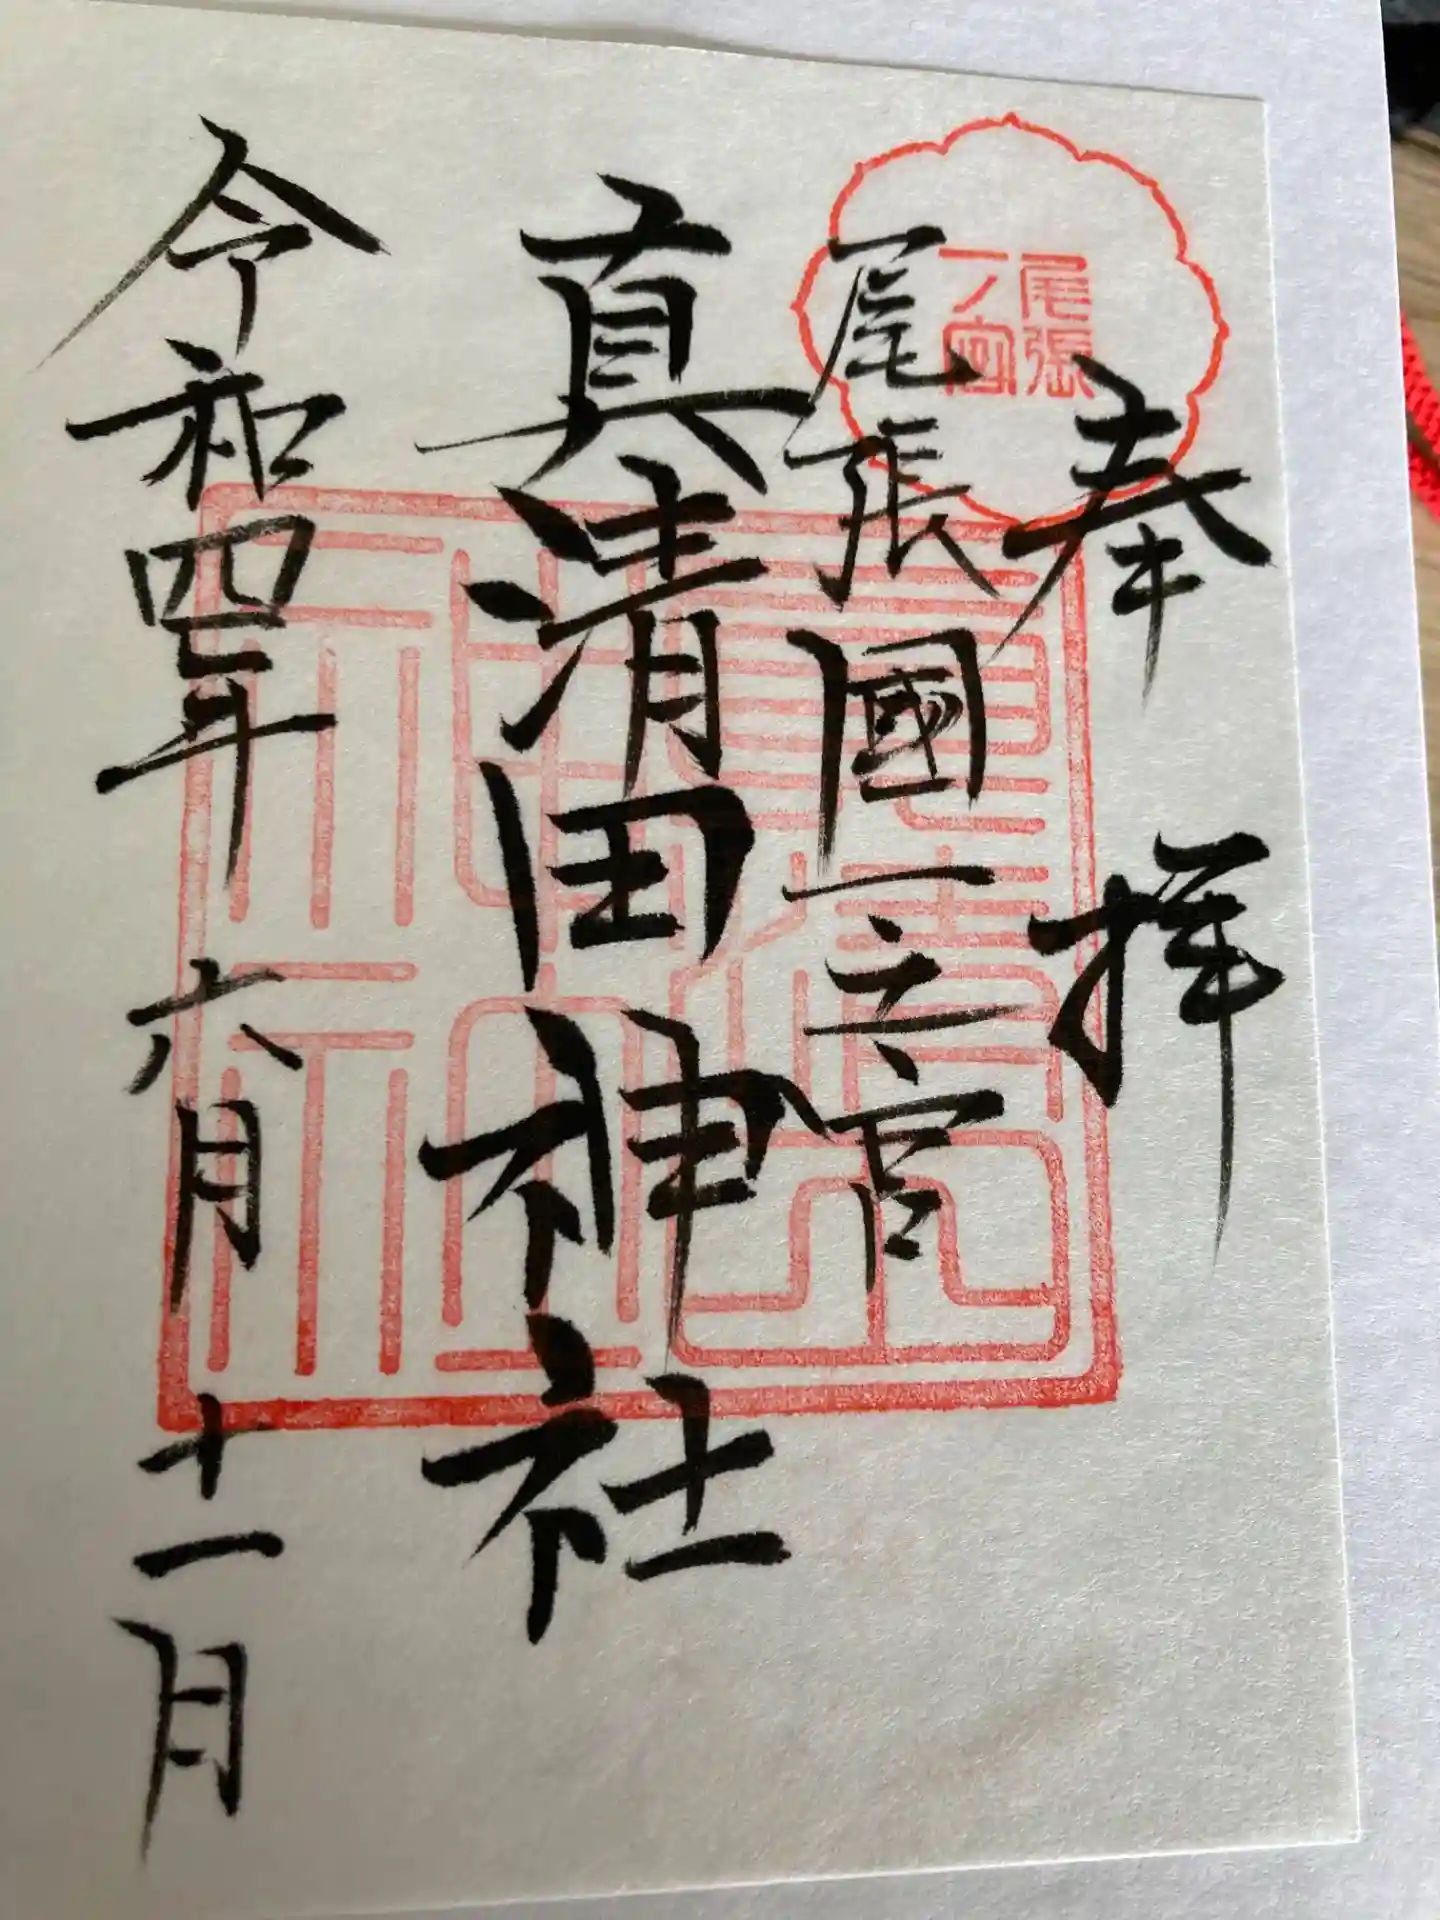 尾張
一ノ宮
奉拝
尾張國一之宮
真清田神社
令和四年六月十一日